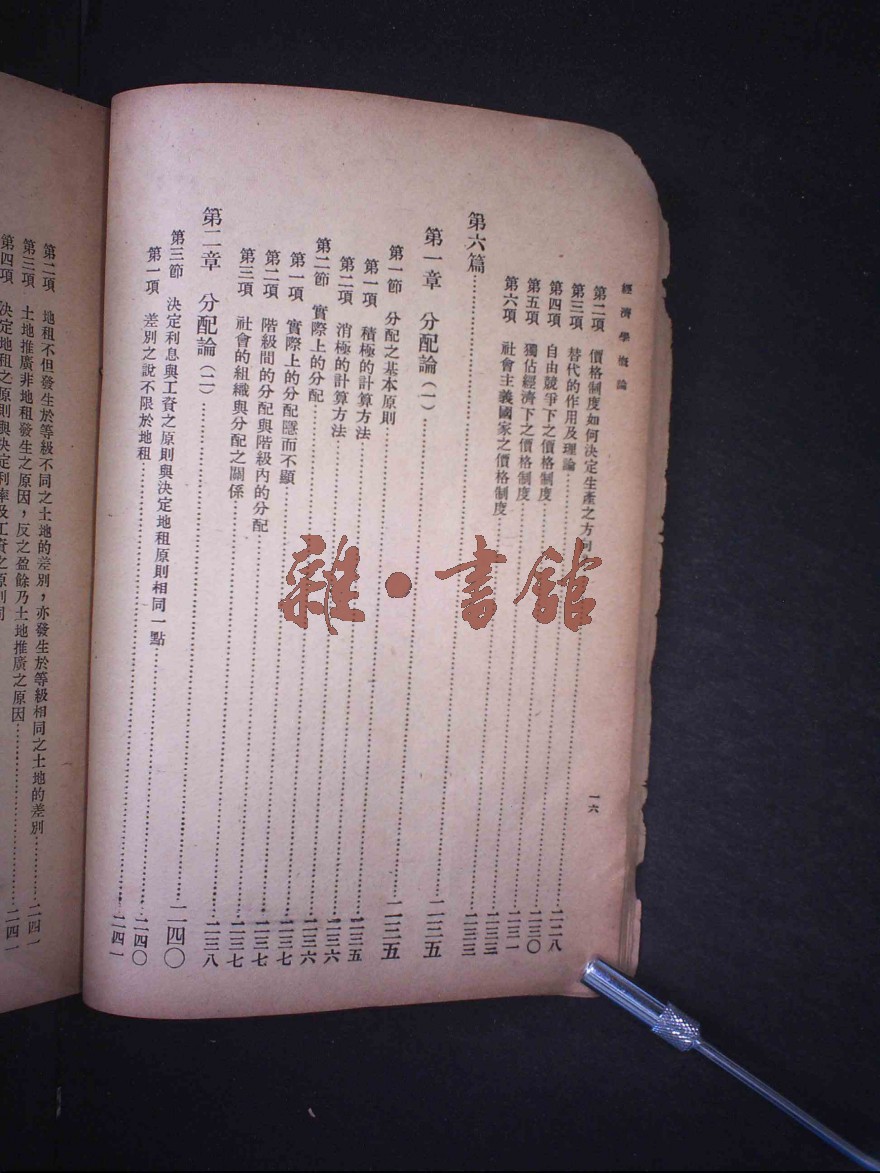 經濟學概論 一六
第二項 價格制度如何決定生產之方向……二二八
第三項 替代的作用及理論……二三〇
第四項 自由競爭下之價格制度……二三一
第五項 獨佔經濟下之價格制度……二三三
第六項 社會主義國家之價格制度……二三三
第六篇……二三五
第一章 分配論(一)……二三五
第一節 分配之基本原則……二三五
第一項 積極的計算方法……二三六
第二項 消極的計算方法……二三六
第二節 實際上的分配……二三七
第一項 實際上的分配隱而不顯……二三七
第二項 階級間的分配與階級內的分配……二三七
第三項 社會的組織與分配之關係……二三八
第二章 分配論(二)……二四〇
第三節 決定利息與工資之原則與決定地租原則相同一點……二四〇
第一項 差別之說不限於地租……二四一
第二項 地租不但發生於等級不同之土地的差別,亦發生於等級相同之土地的差別……二四一
第三項 土地推廣非地租發生之原因,反之盈餘乃土地推廣之原因……二四一
第四項 決定地租之原則與決定利率及工資之原則同
雜·書館